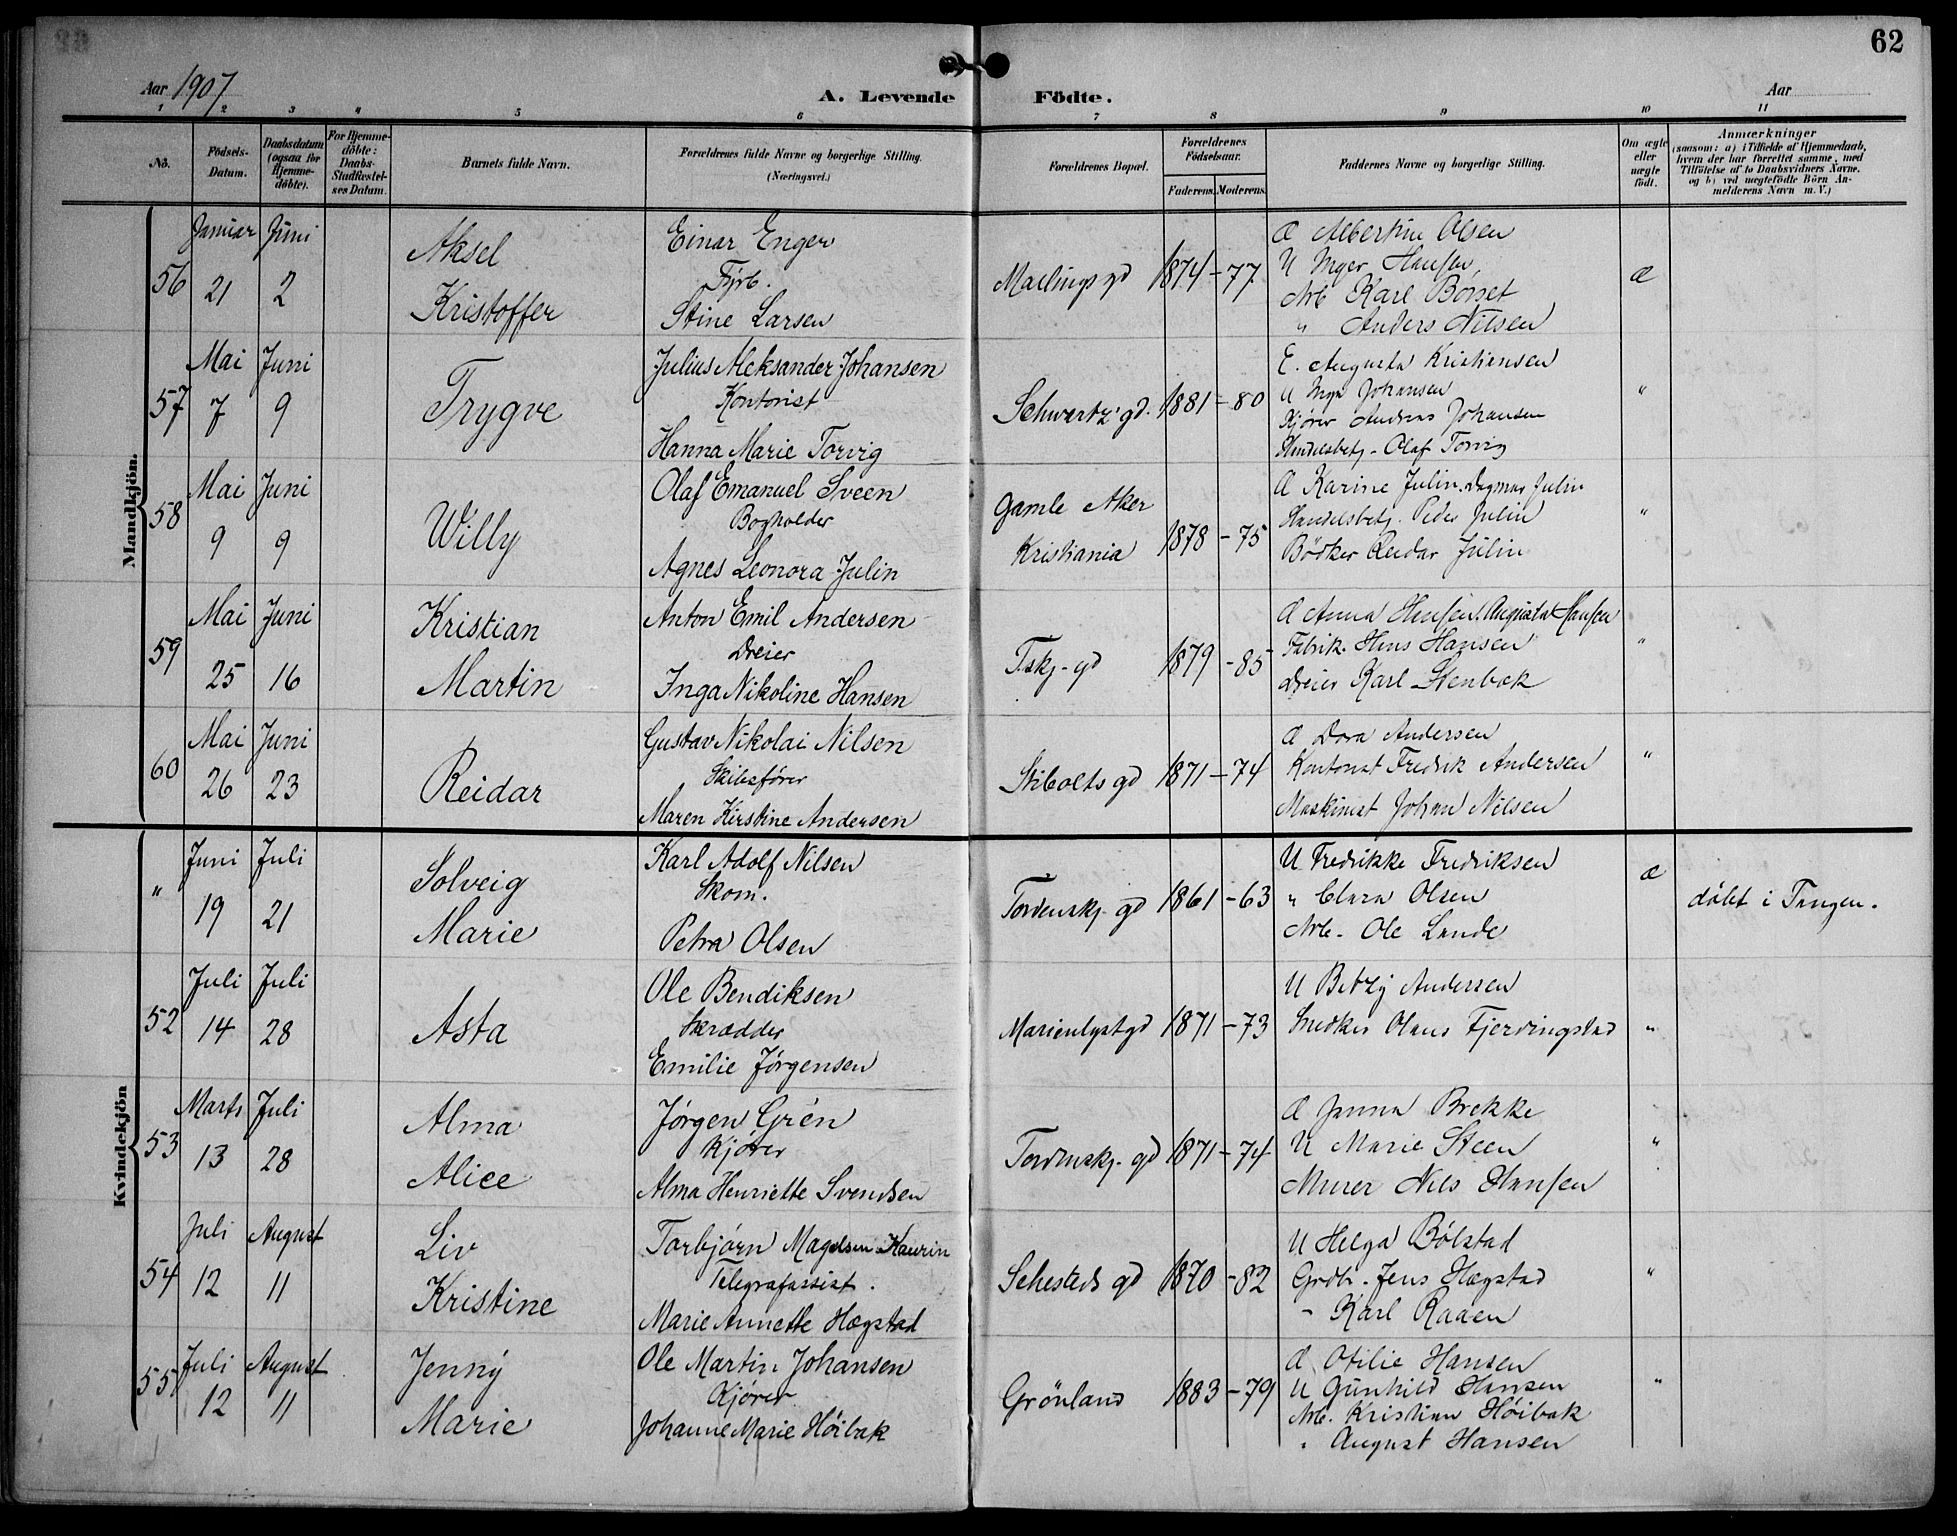 62
Aar 1907
A. Levende Födte.
Aar
1 2 3 4 5 6 7 8 9 10 11
No.
Födsels-Datum.
Daabsdatum (ogsaa for Hjemme-döbte).
For Hjemme-döbte: Daabs-Stadfæstel-ses Datum.
Barnets fulde Navn.
Forældrenes fulde Navne og borgerlige Stilling. (Næringsvei.)
Forældrenes Bopæl.
Forældrenes Födselsaar.
Faderens. Moderens.
Faddernes Navne og borgerlige Stilling.
Om ægte eller uægte födt.
Anmærkninger
(saasom: a) i Tilfælde af Hjemmedaab,
hvem der har forrettet samme, med
Tilföielse af to Daabsvidners Navne,
og b) ved uægtefödte Börn An-
melderens Navn m. V.)
Mandkjön.
56
Januar 21
Juni 2
Aksel
Kristoffer
Einar Enger
Fyrb.
Stine Larsen
Mallings gd
1874 - 77
Æ Albertine Olsen
U Inger Hansen
Arb Karl Borset
" Anders Nilsen
æ
57
Mai 7
Juni 9
Trygve
Julius Aleksander Johansen
Kontorist
Hanna Marie Torvig
Schwartz' gd.
1881 - 80
E. Augusta Kristiansen
U Inga Johansen
Kjører Andreas Johansen
Handelsbetj. Olaf Torvig
"
58
Mai 9
Juni 9
Willy
Olaf Emanuel Sveen
Bogholder
Agnes Leonora Julin
Gamle Aker
Kristiania
1878 - 75
Æ Karine Julin. Dagmar Julin
Handelsbetj. Peder Julin
Bödker Reidar Julin
"
59
Mai 25
Juni 16
Kristian
Martin
Anton Emil Andersen
Dreier
Inga Nikoline Hansen
Tskj. gd
1879 - 85
Æ Anna Hansen. Augusta Hansen
Fabrik. Hans Hansen
Dreier Karl Stenbak
"
60
Mai 26
Juni 23
Reidar
Gustav Nikolai Nilsen
Skibsfører
Maren Kirstine Andersen
Stibolts gd
1871 - 74
Æ Dora Andersen
Kontorist Fredrik Andersen
Maskinist Johan Nilsen
"
Kvindekjön
"
Juni 19
Juli 21
Solveig
Marie
Karl Adolf Nilsen
Skom.
Petra Olsen
Tordenskj. gd
1861 - 63
U Fredrikke Fredriksen
" Clara Olsen
Arb. Ole Lande
æ
døbt i Tangen.
52
Juli 14
Juli 28
Asta
Ole Bendiksen
Skrædder
Emilie Jørgensen
Marienlyst gd
1871 - 73
U Betzy Andersen
Snedker Olaus Fjerdingstad
"
53
Marts 13
Juli 28
Alma
Alice
Jørgen Grén
Kjører
Alma Henriette Svendsen
Tordenskj. gd
1871 - 74
Æ Janna Brekke
U Marie Steen
Murer Nils Hansen
"
54
Juli 12
August 11
Liv
Kristine
Torbjørn Magelsen Kaurin
Telegrafassist.
Marie Annette Hægstad
Sehesteds gd
1870 - 82
U Helga Bølstad
Grdb. Jens Hægstad
" Karl Raaen
"
55
Juli 12
August 11
Jenny
Marie
Ole Martin Johansen
Kjører
Johanne Marie Höibak
Grönland
1883 - 79
Æ Otilie Hansen
U Gunhild Hansen
Arb. Kristian Höibak
" August Hansen
"